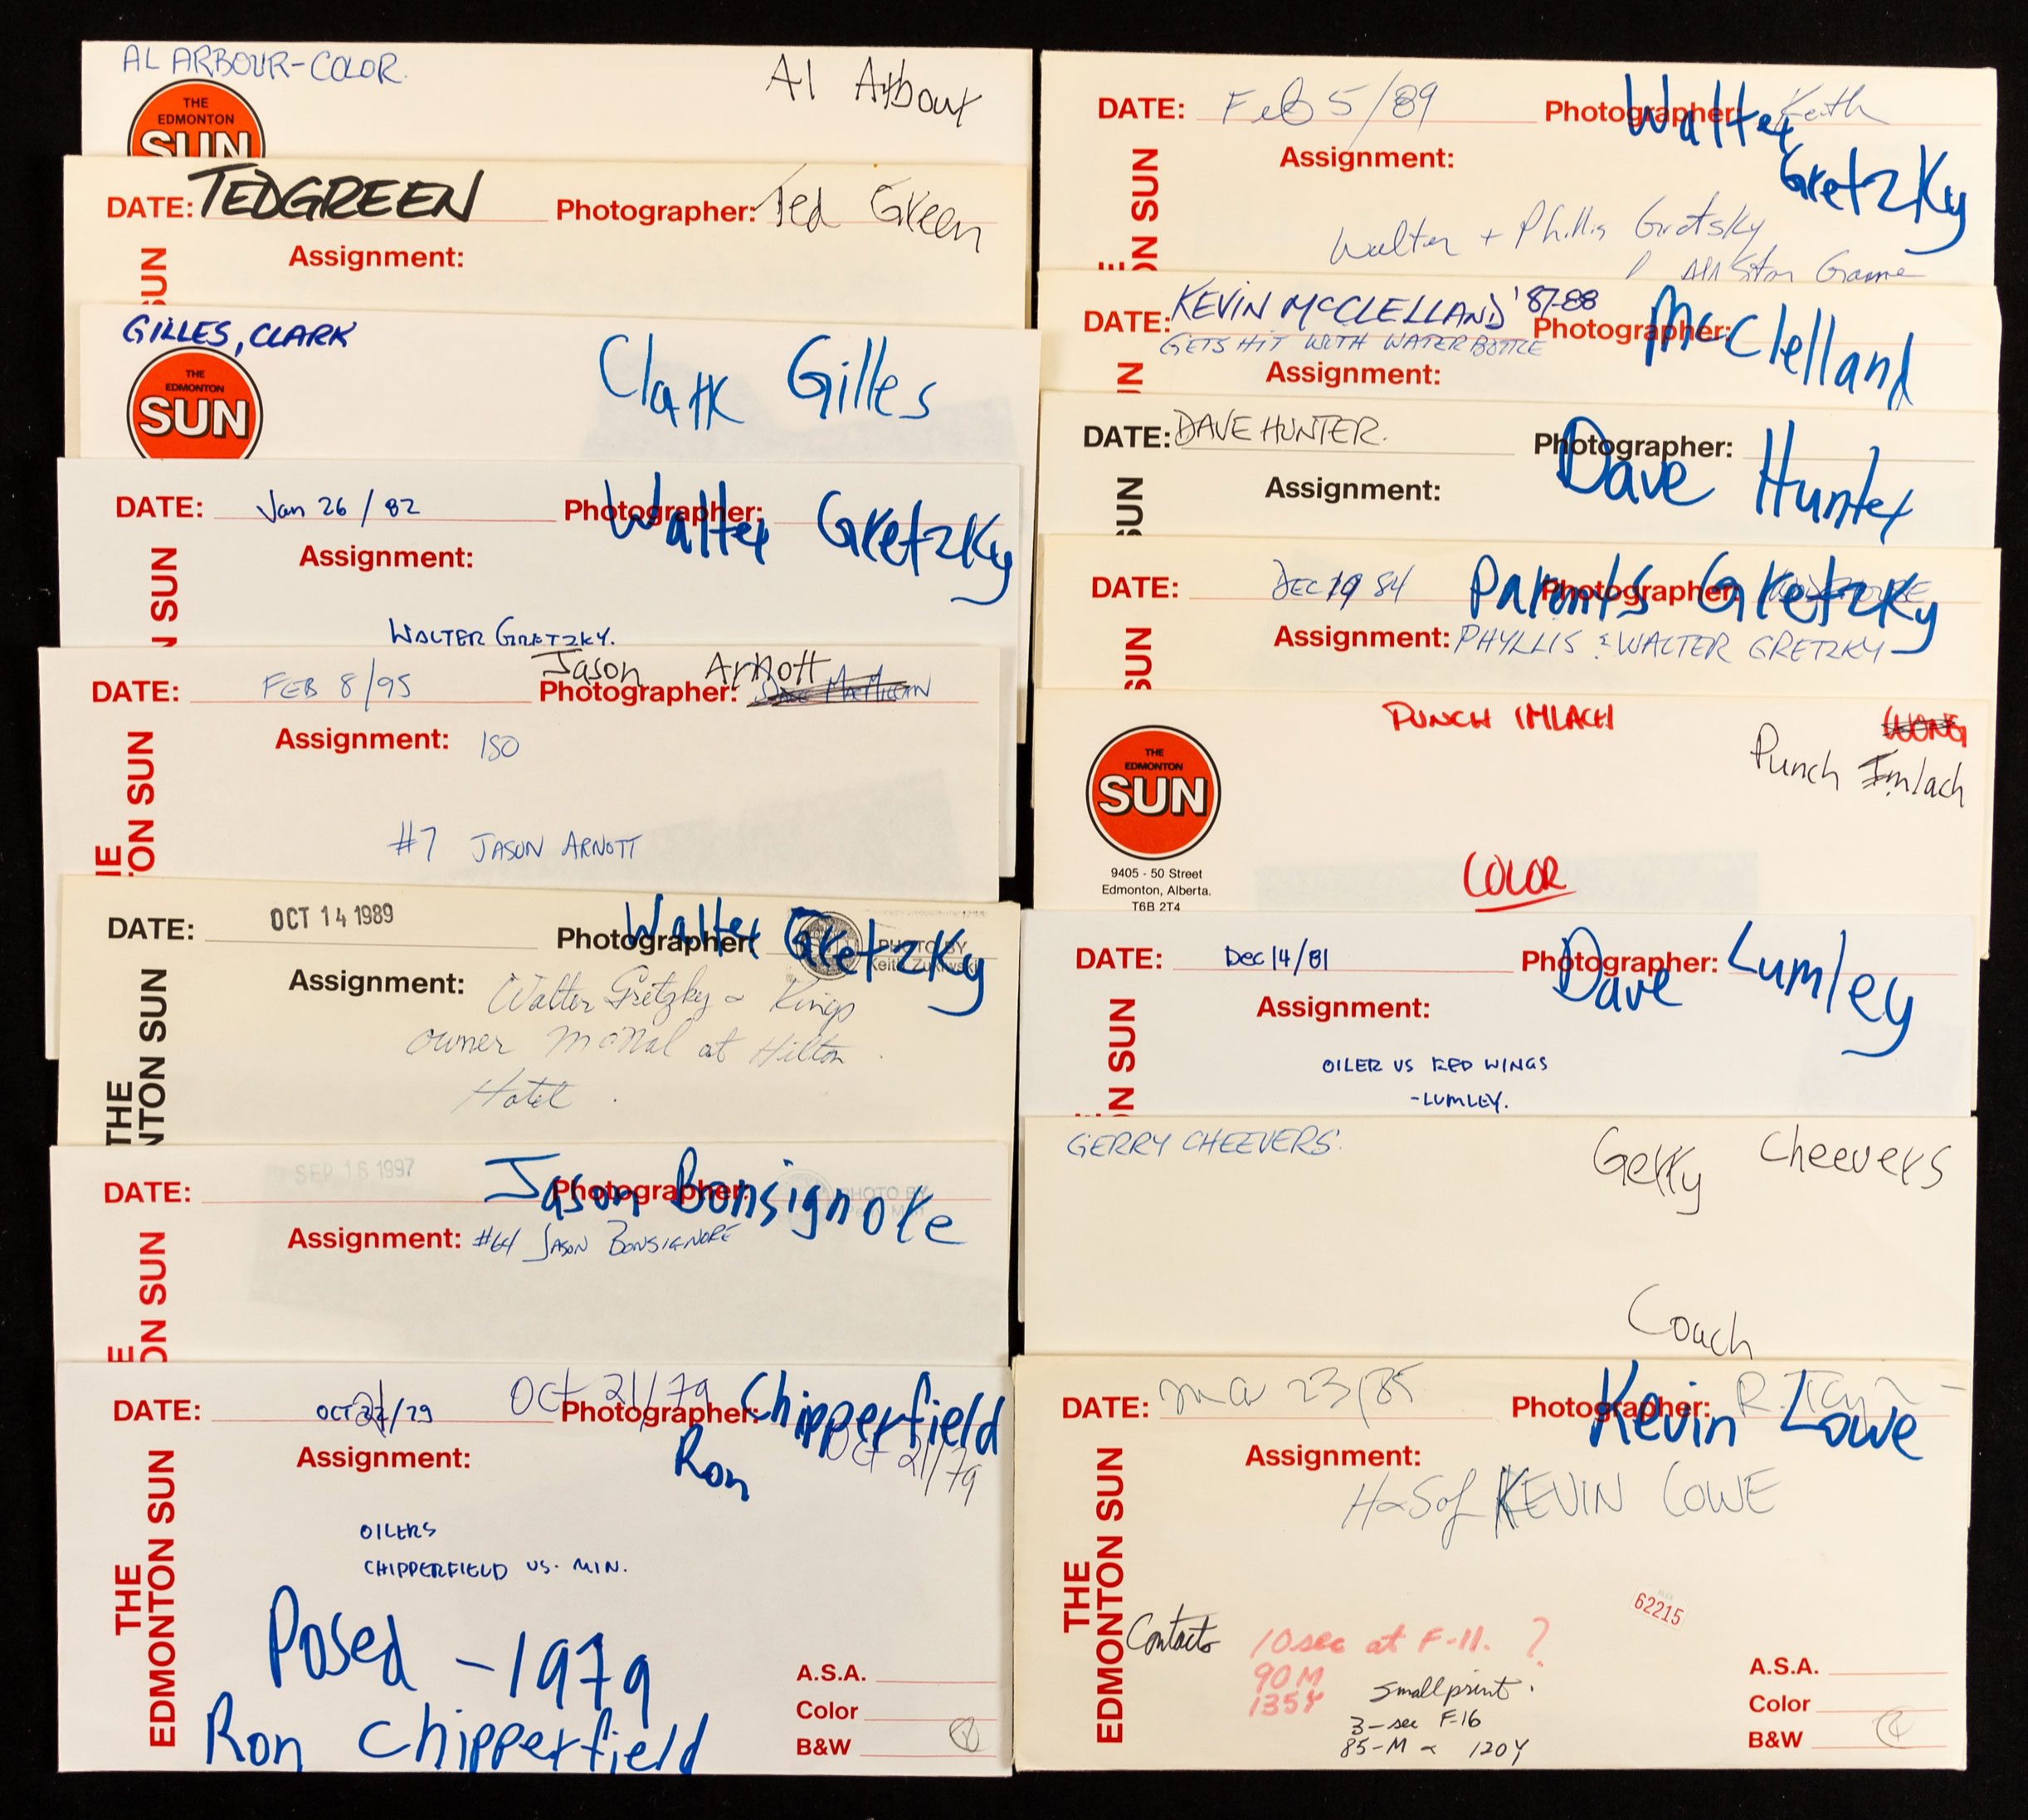 AL ARBOUR-COLOR.
Al Arbour
THE
EDMONTON
SUN
DATE: TED GREEN Photographer: Ted Green
Assignment:
SUN
GILLES, CLARK
Clark Gilles
THE
EDMONTON
SUN
DATE: Jan 26/82 Photographer: Walter Gretzky
Assignment:
N SUN
WALTER GRETZKY.
Jason Arnott
DATE: FEB 8/95 Photographer:
Assignment: ISO
#7 JASON ARNOTT
THE
ON SUN
DATE: OCT 14 1989 Photographer: Walter Gretzky
PHOTO BY
Assignment: Walter Gretzky & Kings
owner McNal at Hilton
Hotel.
THE
NTON SUN
SEP 16 1997
DATE: Photographer: Jason Bonsignore
PHOTO BY
Assignment: #64 JASON BONSIGNORE
E
ON SUN
DATE: OCT 22/79 Oct 21/79 Photographer: Chipperfield
Ron Oct 21/79
Assignment:
OILERS
CHIPPERFIELD VS. MIN.
THE
EDMONTON SUN
Posed - 1979
Ron Chipperfield
A.S.A.
Color
B&W
DATE: Feb 5/89 Photographer: Keith
Walter
Gretzky
Assignment:
Walter + Phillis Gretsky
All Star Game
E
ON SUN
DATE: KEVIN McCLELLAND '87-88 Photographer: McClelland
GETS HIT WITH WATER BOTTLE
Assignment:
N
DATE: DAVE HUNTER. Photographer: Dave Hunter
Assignment:
SUN
DATE: DEC 19 84 Photographer: Parents Gretzky
Assignment: PHYLLIS & WALTER GRETZKY
SUN
PUNCH IMLACH
WONG
Punch Imlach
THE
EDMONTON
SUN
9405 - 50 Street
Edmonton, Alberta.
T6B 2T4
COLOR
DATE: Dec 14/81 Photographer: Dave Lumley
Assignment:
OILER VS RED WINGS
-LUMLEY.
N SUN
GERRY CHEEVERS.
Gerry Cheevers
Coach
DATE: Mar 23/85 Photographer: Kevin Lowe
Assignment:
H&S of KEVIN LOWE
THE
EDMONTON SUN
62215
Contacts
10sec at F-11. ?
90M
135Y
Small print.
3-sec F-16
85-M & 120Y
A.S.A.
Color
B&W